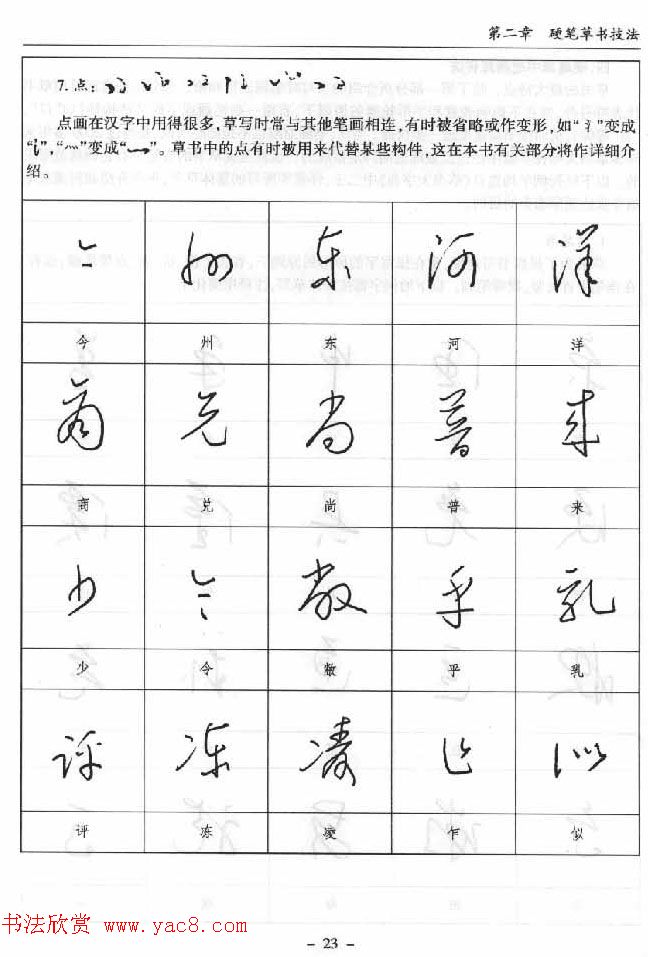 第二章 硬笔草书技法
7.点:
点画在汉字中用得很多,草写时常与其他笔画相连,有时被省略或作变形,如“⺀”变成
“讠”,“灬”变成“一”。草书中的点有时被用来代替某些构件,这在本书有关部分将作详细介
绍。
今 州 东 河 洋
今 州 东 河 洋
商 兑 尚 普 来
商 兑 尚 普 来
少 令 敞 乎 乳
少 令 敞 乎 乳
评 冻 凌 乍 似
评 冻 凌 乍 似
书法欣赏 www.yac8.com
- 23 -